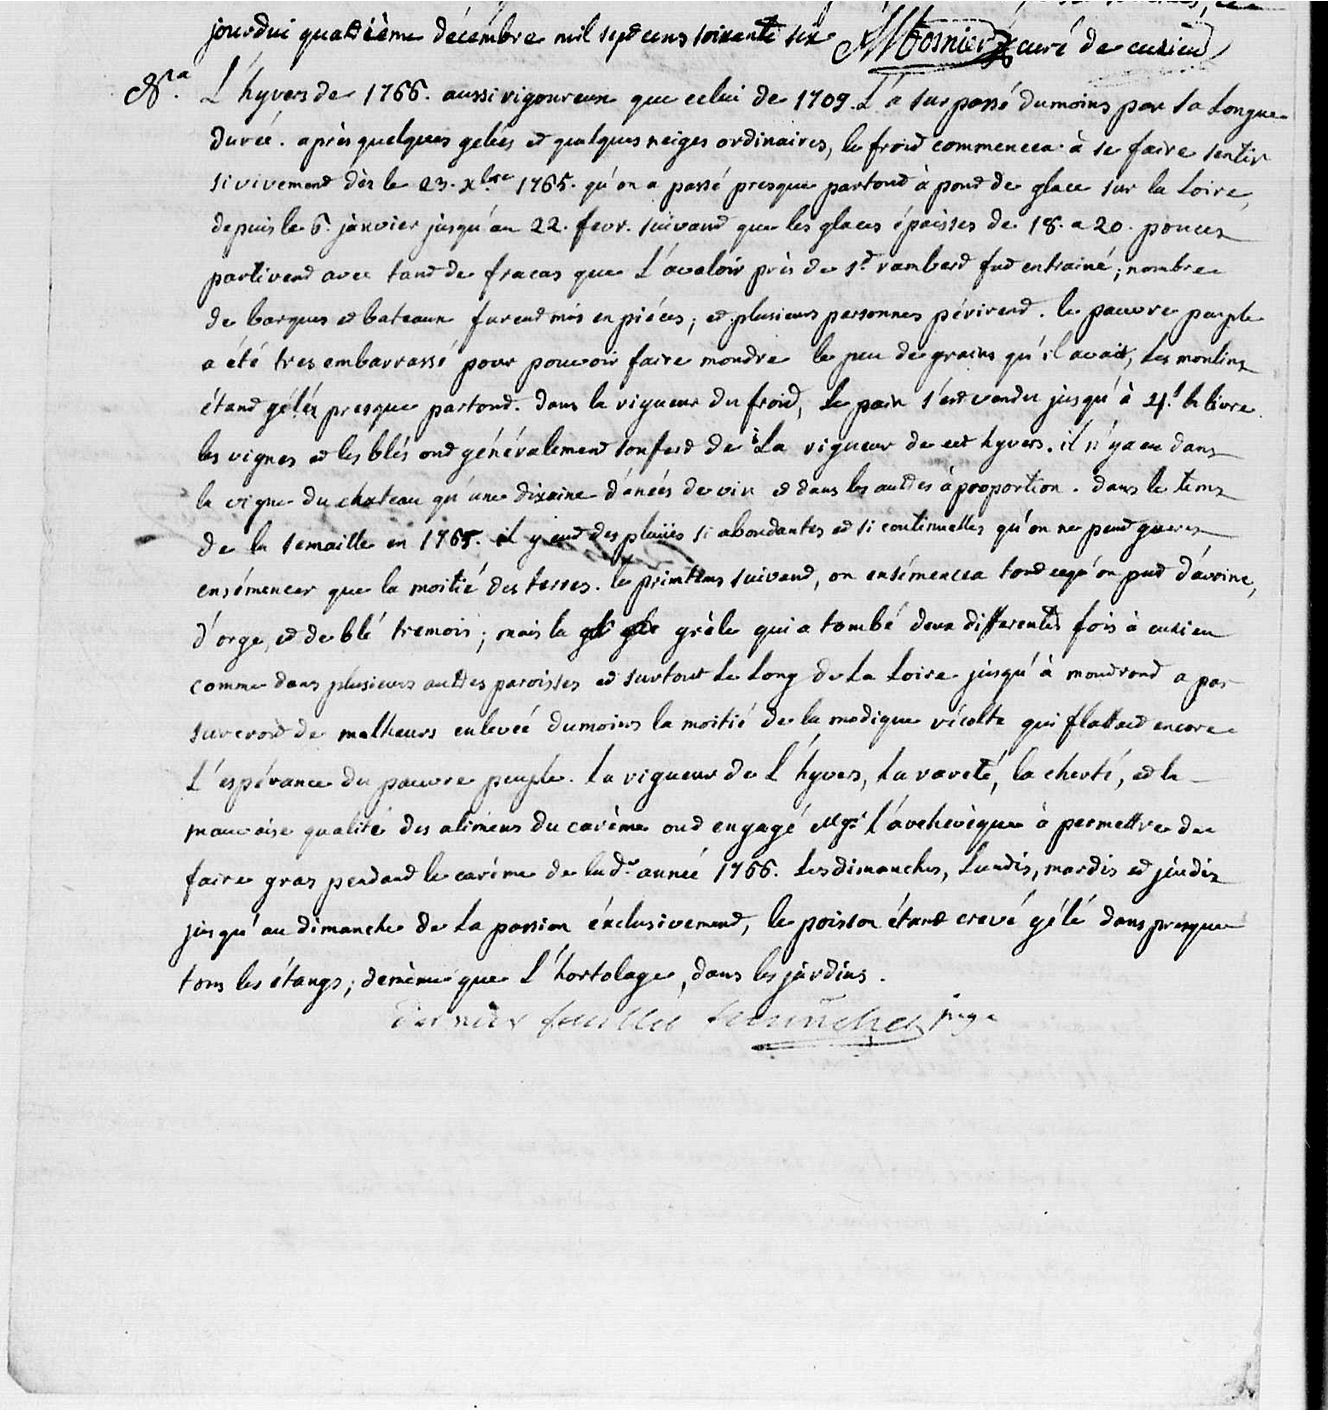 jourdui quatrième décembre mil sept cens soixante six Mosnier curé de cuzieu
N.ta L'hyvers de 1766. aussi rigoureux que celui de 1709. L'a surpassé dumoins par sa Longue
durée. après quelques gelées et quelques neiges ordinaires, le froid commencea à se faire sentir
si vivement dès le 23. xbre 1765. qu'on a passé presque partout à pont de glace sur la Loire,
depuis le 6. janvier jusqu'au 22. fevr. suivant que les glaces épaisses de 18. a 20. pouces
partirent avec tant de fracas que L'avaloir près de st rambert fut entrainé; nombre
de barques et bateaux furent mis en pièces; et plusieurs personnes périrent. le pauvre peuple
a été tres embarrassé pour pouvoir faire moudre le peu de grains qu'il avait, les moulins
étant gélés presque partout. dans la rigueur du froid, Le pain s'est vendu jusqu'à 4.s la livre.
les vignes et les blés ont généralement souffert de La rigueur de cet hyvers. il n'ya eu dans
la vigne du chateau qu'une dixaine d'anées de vin et dans les autres à proportion. dans le tems
de la semaille en 1765. il y eut des pluiies si abondantes et si continuelles qu'on ne peut gueres
ensémencer que la moitié des terres. le printems suivant, on ensémencea tout cequ'on put d'avoine,
d'orge, et de blé tremois; mais la grèle qui a tombé deux differentes fois à cuzieu
comme dans plusieurs autres paroisses et surtout Le Long de La Loire jusqu'à montrond a par
surcroit de malheurs enlevée dumoins la moitié de la modique récolte qui flattait encore
L'espérance du pauvre peuple. La rigueur de L'hyvers, La rareté, la cherté, et la
mauvaise qualité des alimens du carème ont engagé Mgr L'archevèque à permettre de
faire gras pendant le carème de lad.e année 1766. Les dimanches, Lundis, mardis et jeudis
jusqu'au dimanche de La passion éxclusivement, le poisson étant crevé gélé dans presque
tous les étangs; demème que L'hortolage, dans les jardins.
dernier feuillet juge